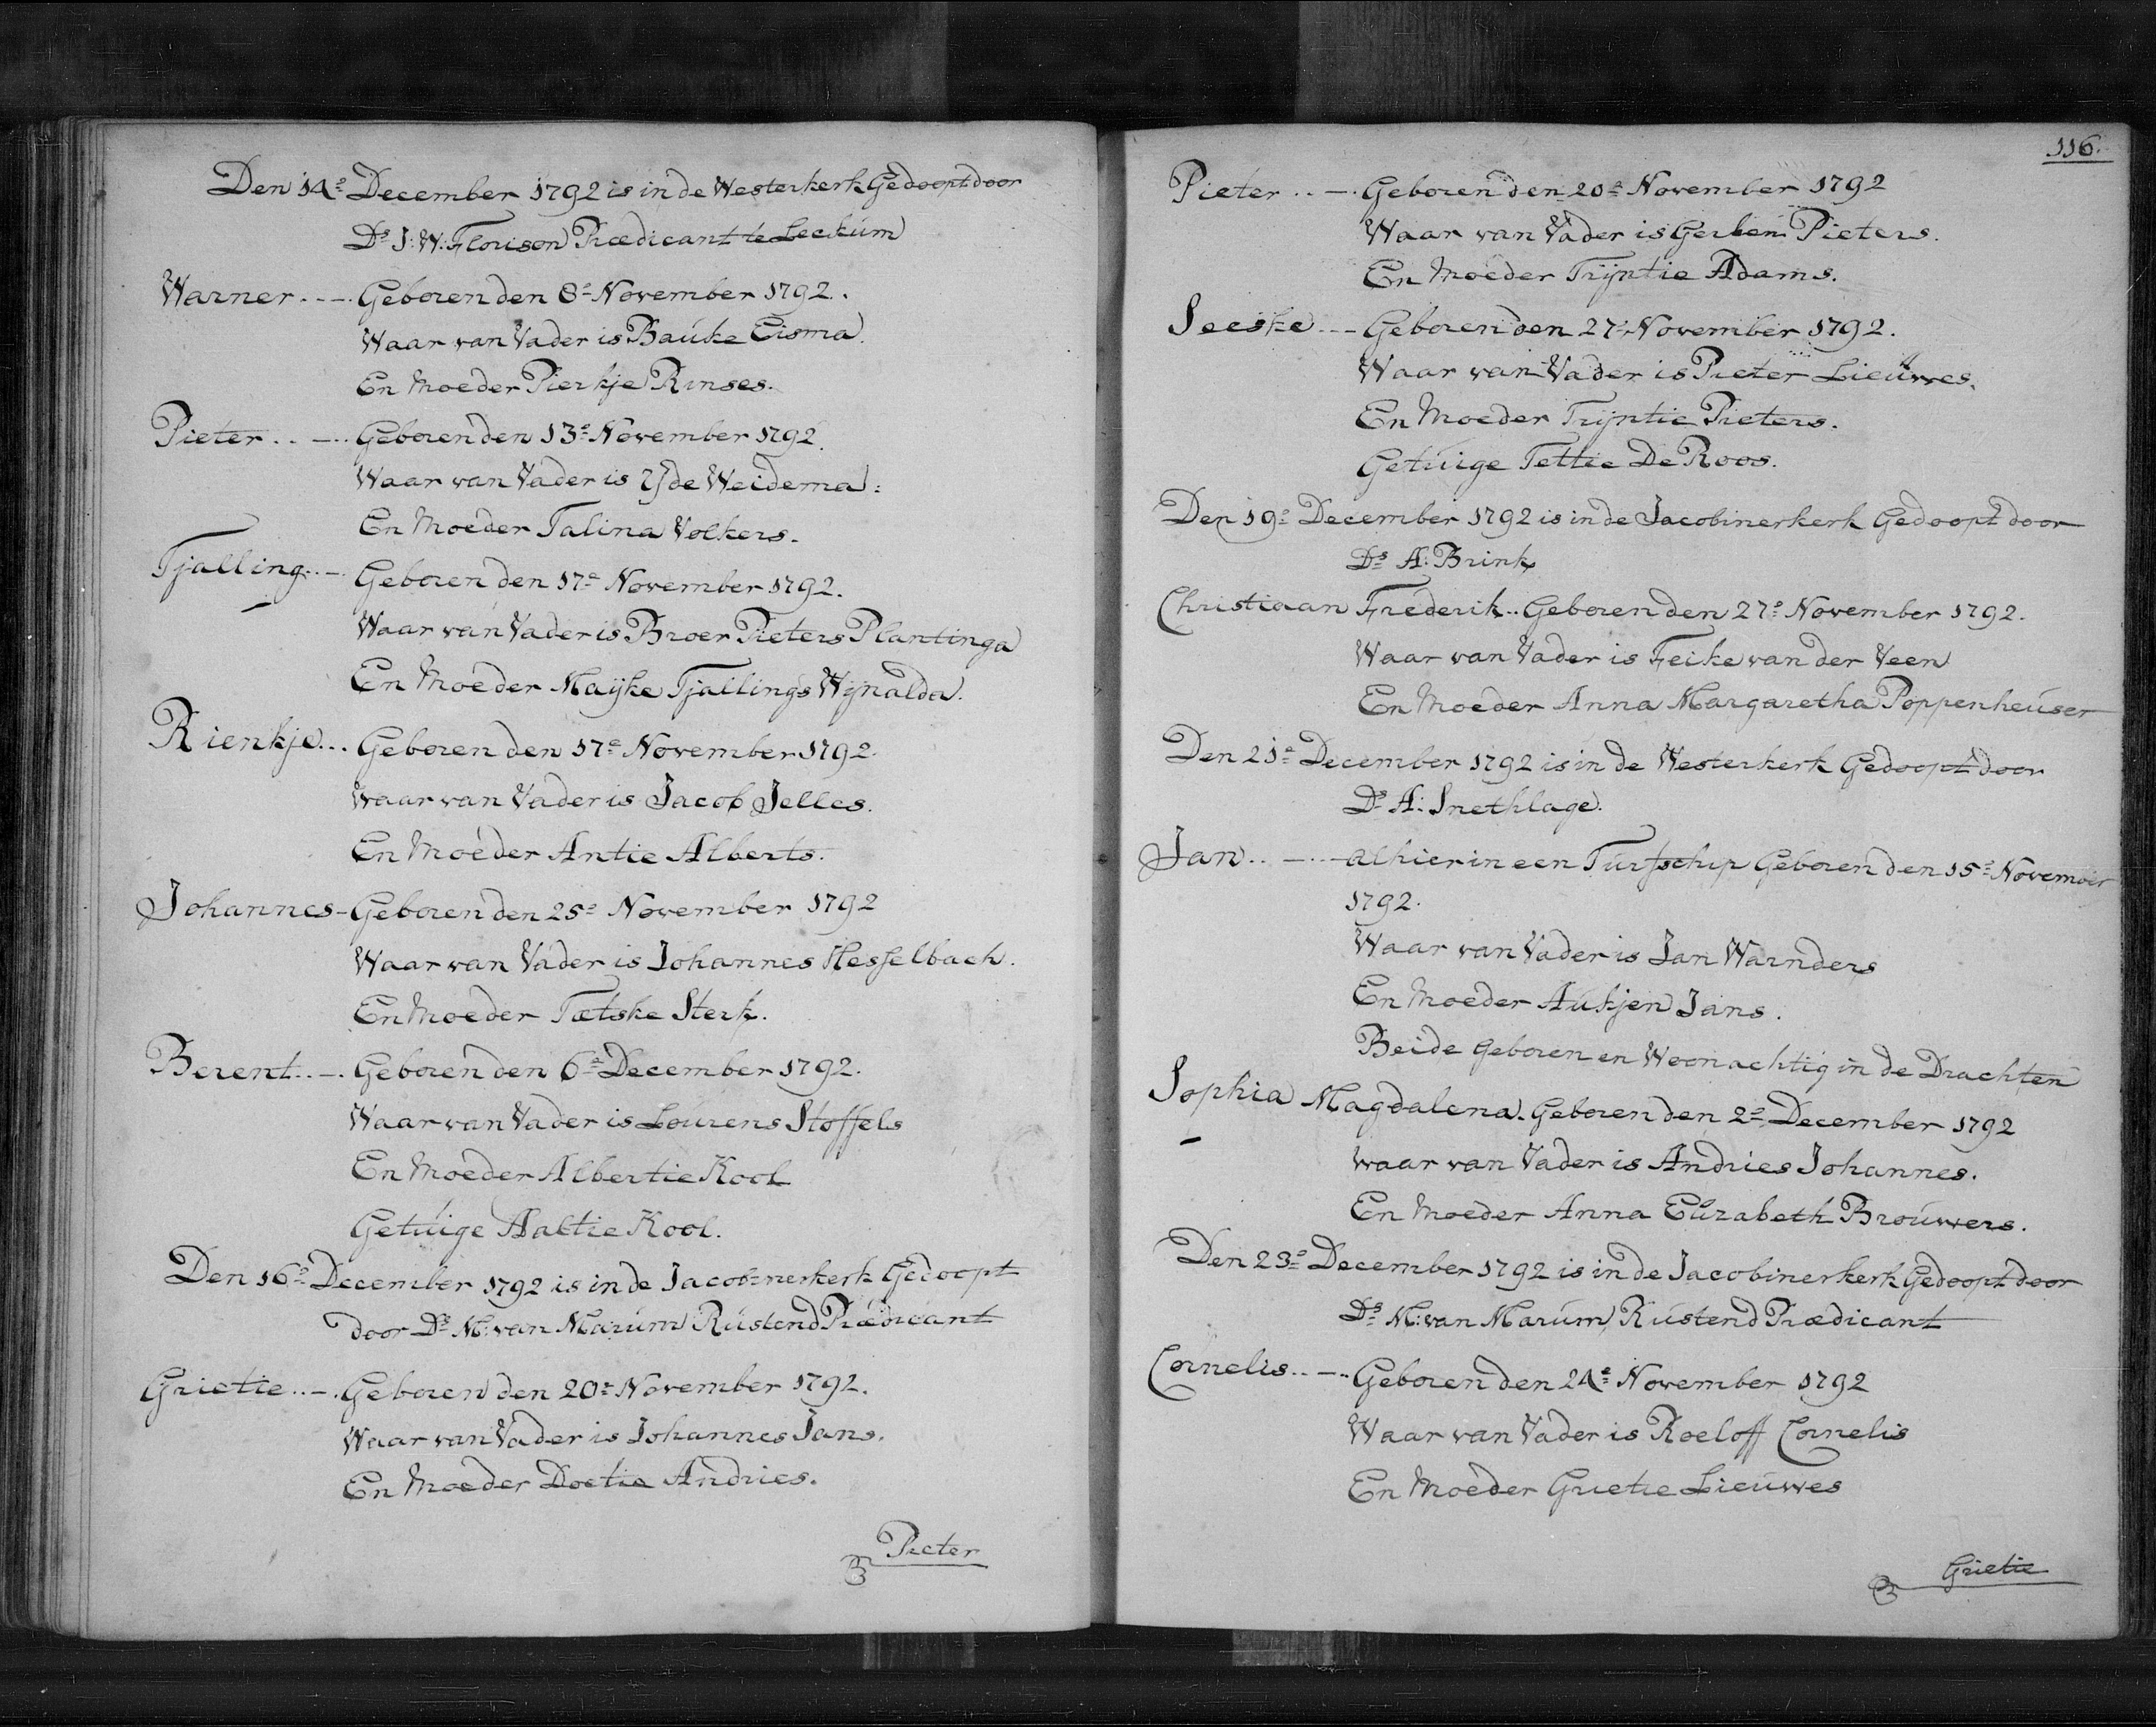 Den 14e December 1792 is in de Westerkerk Gedoopt door
Ds J: W: Florison Prædicant te Leekum
Warner..-. Geboren den 8e November 1792.
Waar van Vader is Bauke Eisma.
En Moeder Pierkje Rinses.
Pieter..-. Geboren den 13e November 1792.
Waar van Vader is IJde Weidema:
En Moeder Talina Volkers.
Tjalling..-. Geboren den 17e November 1792.
Waar van Vader is Broer Pieters Plantinga
En Moeder Maijke Tjallings Wijnalda.
Rienkje... Geboren den 17e November 1792.
Waar van Vader is Jacob Jelles.
En Moeder Antie Alberts.
Johannes - Geboren den 25e November 1792
Waar van Vader is Johannes Hesselbach.
En Moeder Tætske Sterk.
Berent..-. Geboren den 6e December 1792.
Waar van Vader is Lourens Stoffels
En Moeder Albertie Kool
Getuige Aaltie Kool.
Den 16e December 1792 is in de Jacobinerkerk Gedoopt
door Ds M: van Marum Rustend Prædicant
Grietie..-. Geboren den 20e November 1792.
Waar van Vader is Johannes Jans.
En Moeder Doetie Andries.
Pieter
116.
Pieter..-. Geboren den 20e November 1792
Waar van Vader is Gerben Pieters.
En Moeder Trijntie Adams.
Seeske..- Geboren den 27e November 1792.
Waar van Vader is Pieter Lieuwes.
En Moeder Trijntie Pieters.
Getuige Tettie De Roos.
Den 19e December 1792 is in de Jacobinerkerk Gedoopt door
Ds A: Brink
Christiaan Frederik.. Geboren den 27e November 1792.
Waar van Vader is Feike van der Veen
En Moeder Anna Margaretha Poppenheuser
Den 21e December 1792 is in de Westerkerk Gedoopt door
Ds A: Snethlage.
Jan..-.. alhier in een Turfschip Geboren den 15e Novembir
1792.
Waar van Vader is Jan Warnders
En Moeder Aukjen Jans.
Beide Geboren en Woonachtig in de Drachten
Sophia Magdalena. Geboren den 2e December 1792
waar van Vader is Andries Johannes.
En Moeder Anna Elizabeth Brouwers.
Den 23e December 1792 is in de Jacobinerkerk Gedoopt door
Ds M: van Marum Rustend Prædicant
Cornelis..-.. Geboren den 24e November 1792
Waar van Vader is Roeloff Cornelis
En Moeder Grietie Lieuwes
Grietie